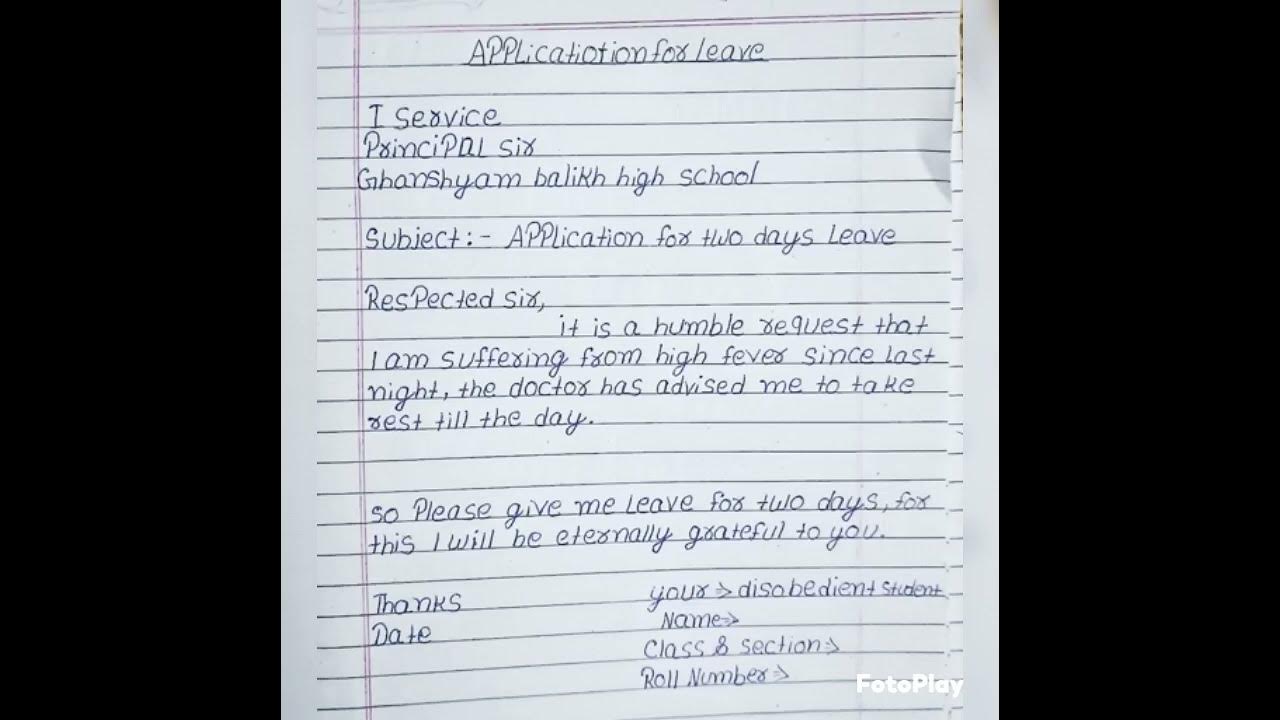 APPLicatiotion for Leave
I Service
PrinciPAL sir
Ghanshyam balikh high school
Subject:- APPLication for two days Leave
ResPected sir,
it is a humble request that
I am suffering from high fever since last
night, the doctor has advised me to take
rest till the day.
so Please give me Leave for two days, for
this I will be eternally grateful to you.
Thanks your⇒ disobedient Student
Date Name⇒
Class & section⇒
Roll Number⇒
FotoPlay